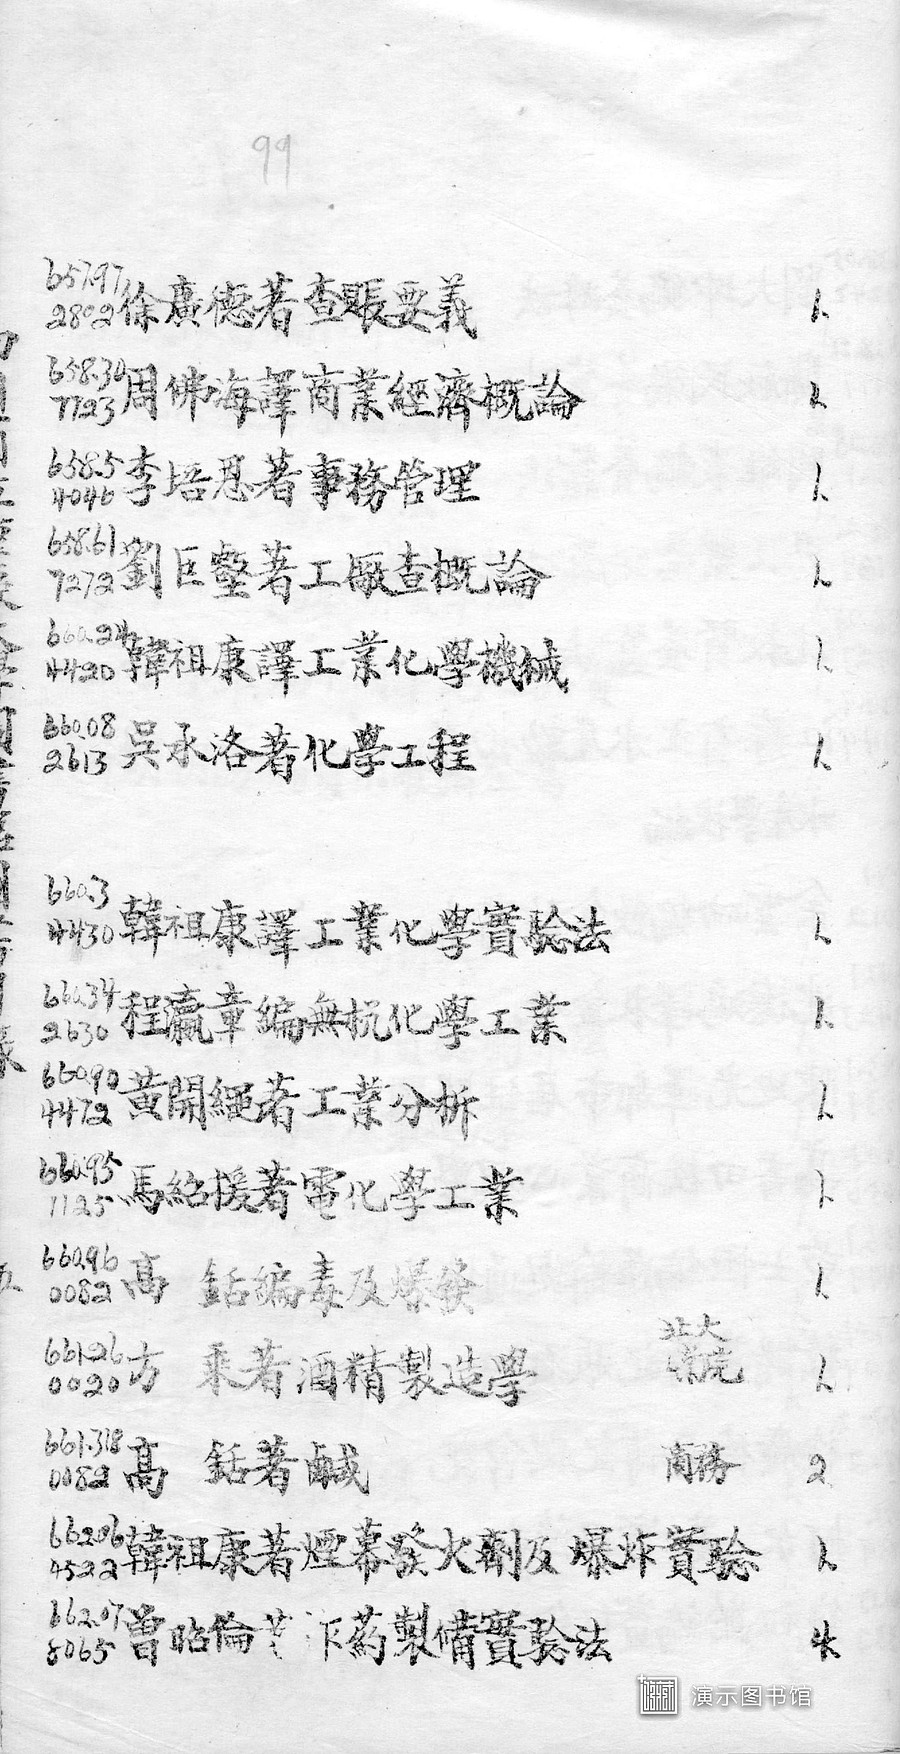 99
657.97
2802 徐廣德著查賬要義 1
658.30
7723 周佛海譯商業經濟概論 1
658.5
4046 李培恩著事務管理 1
658.61
7272 劉巨壑著工廠查概論 1
660.24
4420 韓祖康譯工業化學機械 1
660.08
2613 吳承洛著化學工程 1
660.3
4430 韓祖康譯工業化學實驗法 1
660.34
2630 程瀛章編無杭化學工業 1
660.90
4472 黃開繩著工業分析 1
660.95
1125 馬紹援著電化學工業 1
660.96
0082 高 銛編毒及爆發 1
661.26
0020 方 乘著酒精製造學 北大 1
661.318
0082 高 銛著鹹 商務 2
662.06
4522 韓祖康著煙幕發火劑及爆炸實驗 1
662.07
8065 曾昭倫 炸藥製備實驗法
演示图书馆